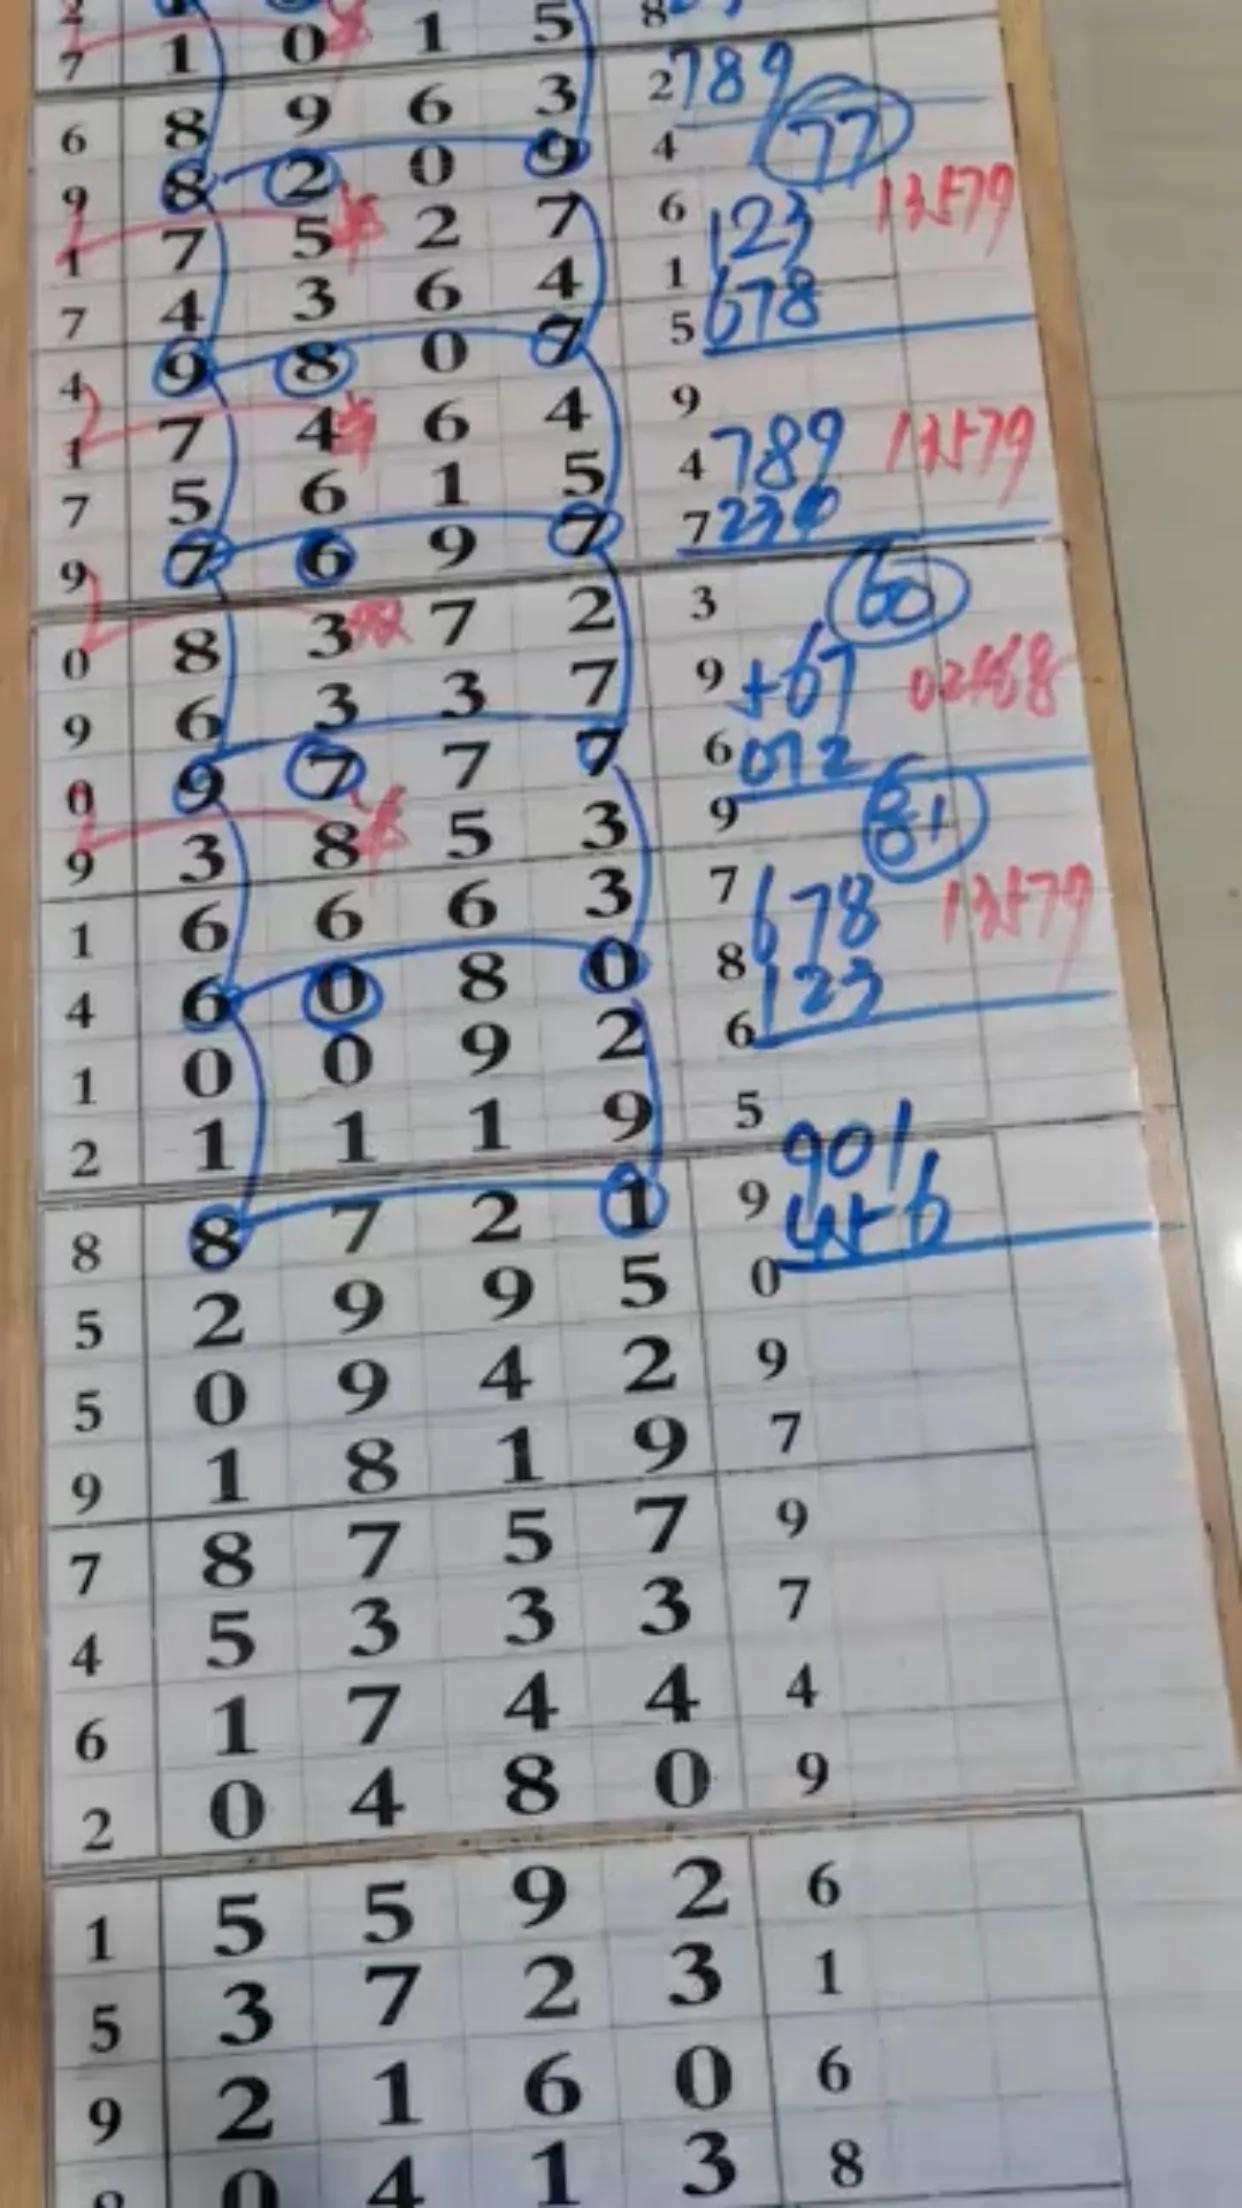 7 1 0 1 5 8
6 8 9 6 3 2 789
9 8 2 0 9 4 77
1 7 5 2 7 6 123 13579
7 4 3 6 4 1 678
4 9 8 0 7 5
1 7 4 6 4 9
7 5 6 1 5 4 789 13579
9 7 6 9 7 7
0 8 3 双 7 2 3 60
9 6 3 3 7 9 567 02468
0 9 7 7 7 6 012
9 3 8 5 3 9 61
1 6 6 6 3 7 678 13579
4 6 0 8 0 8 123
1 0 0 9 2 6
2 1 1 1 9 5 901
8 8 7 2 1 9 456
5 2 9 9 5 0
5 0 9 4 2 9
9 1 8 1 9 7
7 8 7 5 7 9
4 5 3 3 3 7
6 1 7 4 4 4
2 0 4 8 0 9
1 5 5 9 2 6
5 3 7 2 3 1
9 2 1 6 0 6
0 4 1 3 8